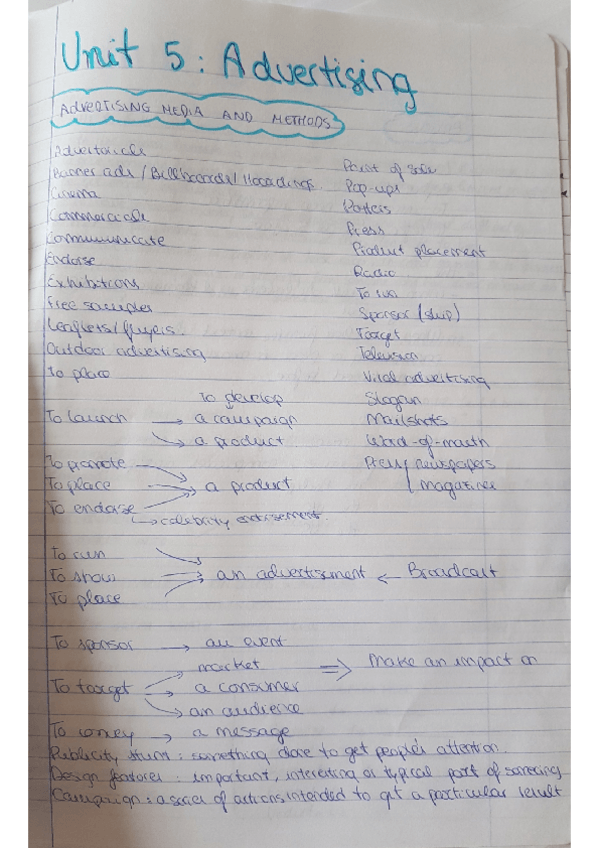 Unit 5: Advertising
ADVERTISING MEDIA AND METHODS
Advertorials
Banner ads / Billboards / Hoardings
Cinema
Commercials
Communicate
Endorse
Exhibitions
Free samples
Leaflets / flyers
Outdoor advertising
To place
Point of sale
Pop-ups
Posters
Press
Product placement
Radio
To run
Sponsor (ship)
Target
Television
Viral advertising
Slogan
Mailshots
Word-of-mouth
Press / newspapers
/ magazines
To develop
To launch → a campaign
→ a product
To promote
To place → a product
To endorse
→ celebrity
To run
To show → an advertisement ← Broadcast
To place
To sponsor → an event
market ⇒ Make an impact on
To target → a consumer
→ an audience
To convey → a message
Publicity stunt: something done to get people's attention.
Design features: important, interesting or typical part of something
Campaign: a series of actions intended to get a particular result